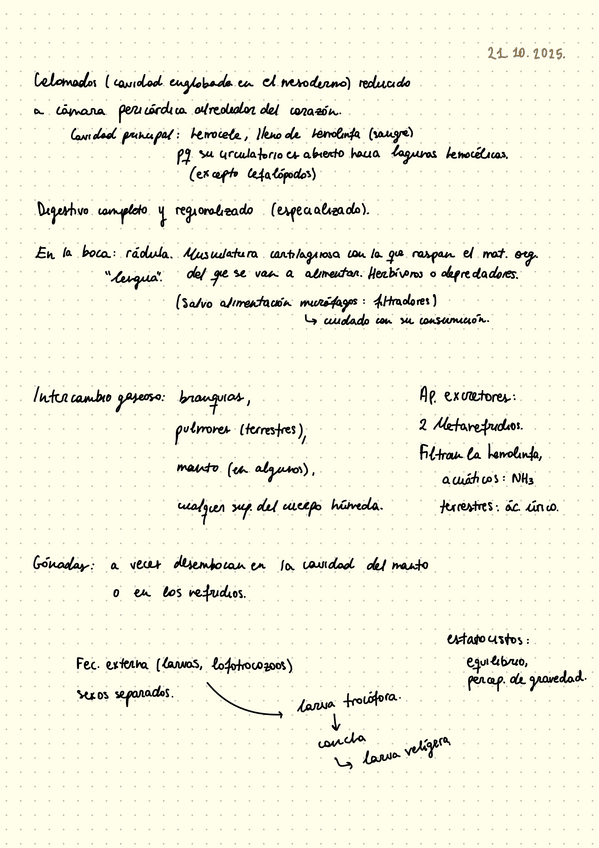 21.10.2025.
Celomados (cavidad englobada en el mesodermo) reducido
a cámara pericárdica alrededor del corazón.
Cavidad principal: hemocele, lleno de hemolinfa (sangre)
pq su circulatorio es abierto hacia lagunas hemocélicas.
(excepto cefalópodos)
Digestivo completo y regionalizado (especializado).
En la boca: rádula. Musculatura cartilaginosa con la que raspan el mat. org.
"lengua". del que se van a alimentar. Herbívoros o depredadores.
(Salvo alimentación micrófagos: filtradores)
↳ cuidado con su consumición.
Intercambio gaseoso: branquias,
pulmones (terrestres),
manto (en algunos),
cualquier sup. del cuerpo húmeda.
Ap. excretores:
2 Metanefridios.
Filtran la hemolinfa,
acuáticos: NH3
terrestres: ác. úrico.
Gónadas: a veces desembocan en la cavidad del manto
o en los nefridios.
estatocistos:
equilibrio,
percep. de gravedad.
Fec. externa (larvas, lofotrocozoos)
sexos separados.
larva trocófora.
↓
concha
↳ larva velígera